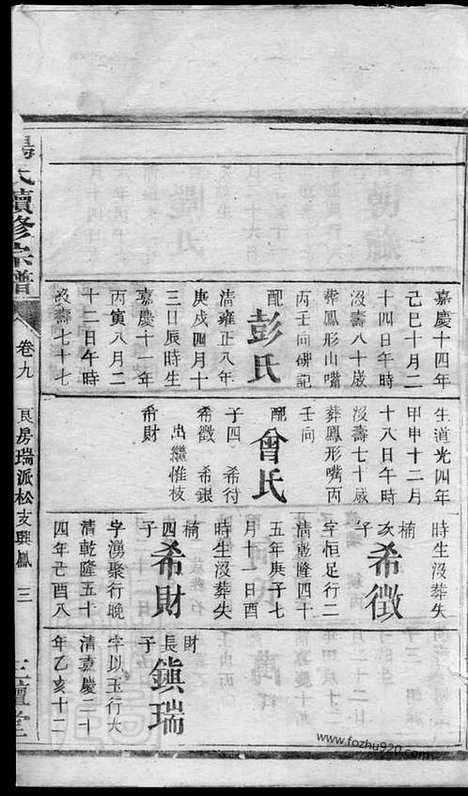 嘉慶十四年
己巳十月二
十四日午時
沒壽八十歲
葬鳳形山嘴
丙壬向碑記
配彭氏
清雍正八年
庚戌四月十
三日辰時生
嘉慶十一年
丙寅八月二
十二日午時
沒壽七十七
生道光四年
甲申十二月
十八日午時
沒壽七十歲
葬鳳形嘴丙
壬向
配曾氏
子四 希待
希徵 希銀
出繼惟枝
希財
時生沒葬失
楠次子 希徵
字恒足行二
清乾隆四十
五年庚子七
月十一日酉
時生沒葬失
楠四子 希財
字湧聚行晚
清乾隆五十
四年己酉八
財長子 鎮瑞
字以玉行大
清嘉慶二十
年乙亥十二
楊氏續修宗譜 卷九 良房瑞派松支興鳳 三 三鱣堂
www.fozhu920.com